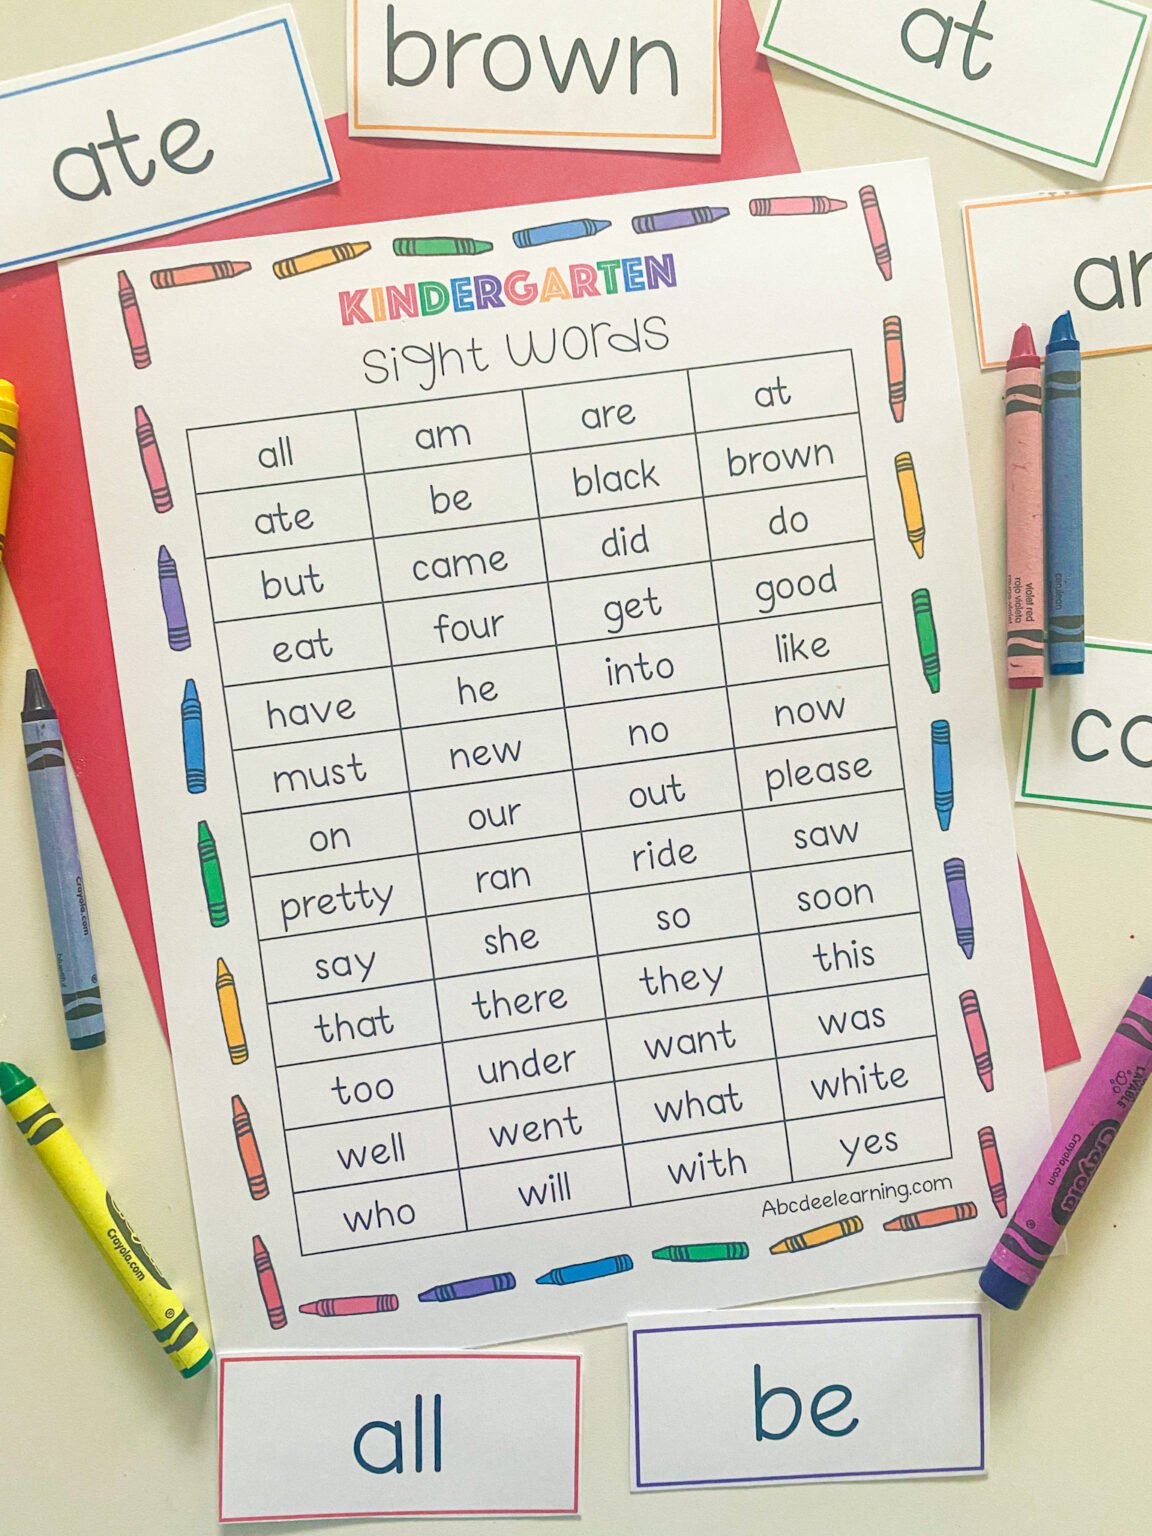 ate
brown
at
ar
KINDERGARTEN
sight words
all am are at
ate be black brown
but came did do
eat four get good
have he into like
must new no now
on our out please
pretty ran ride saw
say she so soon
that there they this
too under want was
well went what white
who will with yes
Abcdeelearning.com
co
violet red
rojo violeta
cerulean
Crayola.com
Crayola
Crayola.com
WASHABLE
Crayola
Crayola.com
all
be